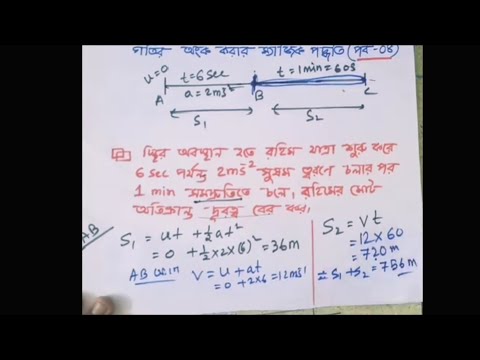 গতির অংক করার ম্যাজিক পদ্ধতি (পর্ব-08)
u=0
t=6sec
t=1min=60s
a=2ms⁻²
A
B
C
S₁
S₂
স্থির অবস্থান হতে রহিম যাত্রা শুরু করে
6 sec পর্যন্ত 2ms⁻² সুষম ত্বরণে চলার পর
1 min সমদ্রুতিতে চলে, রহিমের মোট
অতিক্রান্ত দূরত্ব বের কর।
AB
S₁ = ut + ½at²
= 0 + ½×2×(6)² = 36m
V = u + at
= 0 + 2×6 = 12ms⁻¹
S₂ = Vt
= 12×60
= 720m
= S₁+S₂ = 756m